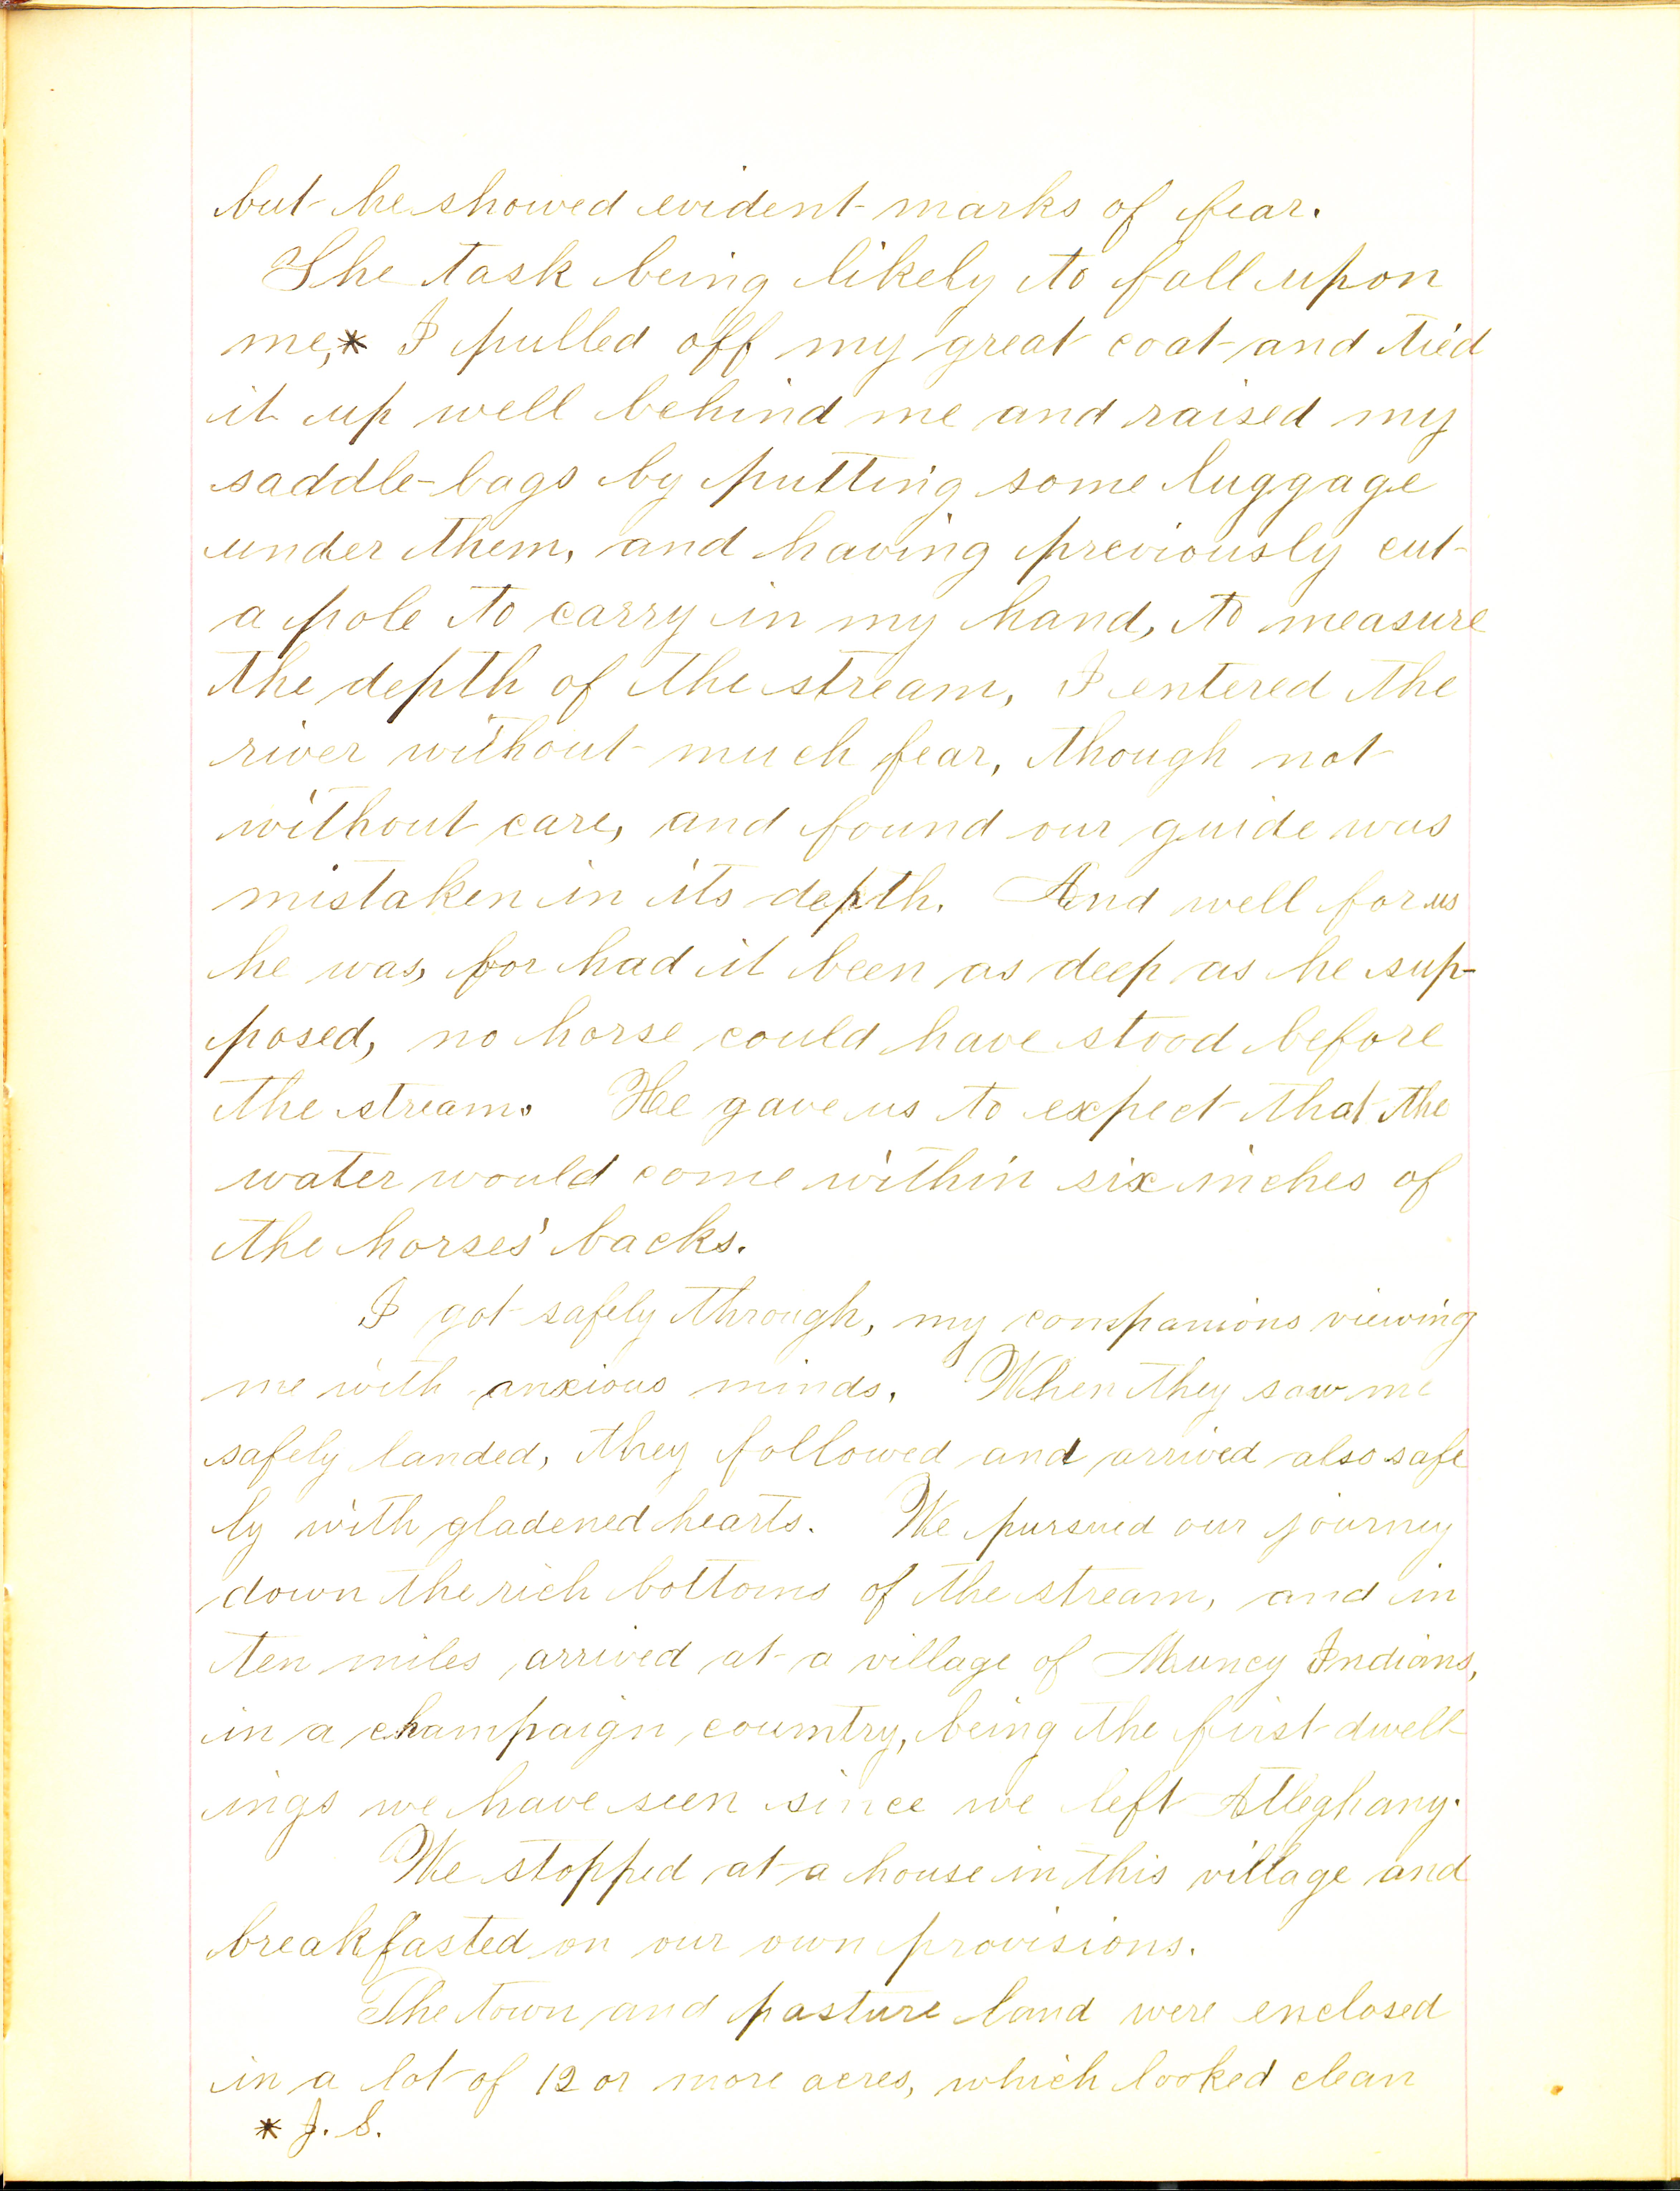 but he showed evident marks of fear.
The task being likely to fall upon
me,* I pulled off my great coat and tied
it up well behind me and raised my
saddle-bags by putting some luggage
under them, and having previously cut
a pole to carry in my hand, to measure
the depth of the stream, I entered the
river without much fear, though not
without care, and found our guide was
mistaken in its depth. And well for us
he was, for had it been as deep as he sup-
posed, no horse could have stood before
the stream. He gave us to expect that the
water would come within six inches of
the horses' backs.
I got safely through, my companions viewing
me with anxious minds. When they saw me
safely landed, they followed and arrived also safe
ly with gladened hearts. We pursued our journey
down the rich bottoms of the stream, and in
ten miles arrived at a village of Muncy Indians,
in a champaign country, being the first dwell
ings we have seen since we left Alleghany.
We stopped at a house in this village and
breakfasted on our own provisions.
The town and pasture land were enclosed
in a lot of 12 or more acres, which looked clean
* J. S.